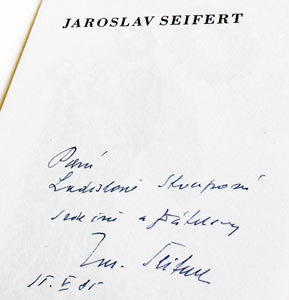 JAROSLAV SEIFERT
Paní
Ladislavě
srdečně a přátelsky
Jar. Seifert
15. V 85